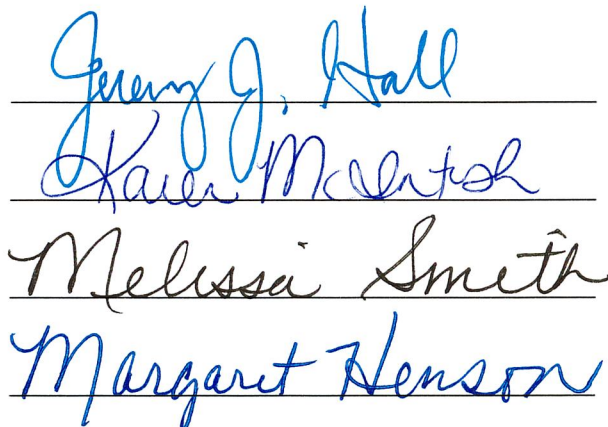 Jeremy J. Hall
Karen McIntosh
Melissa Smith
Margaret Henson